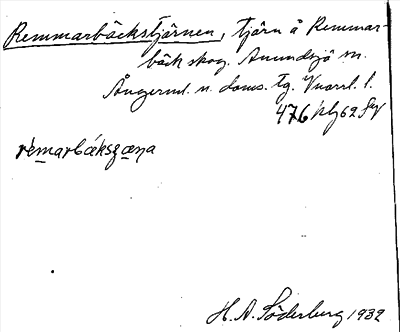 Remmarbäckstjärnen, tjärn å Remmar-
bäck skog. Anundsjö sn.
Ångerml. n. doms. tg. Vnorrl. l.
476 Nlg 62
rémarbákszæna
H. A. Söderberg 1932